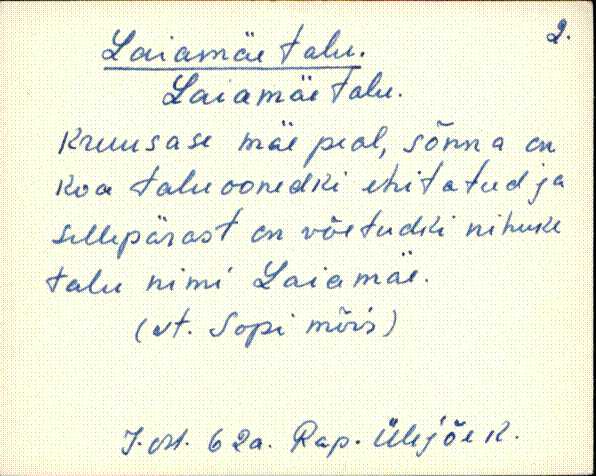 2.
Laiamäe talu.
Laiamäe talu.
Kruusase mäe peal, sõnna on
koa taluoonedki ehitatud ja
sellepärast on võetudki nihuke
talu nimi Laiamäe.
(vt. Sopi mõis)
J. ost. 62a. Rap. Ülejõe k.